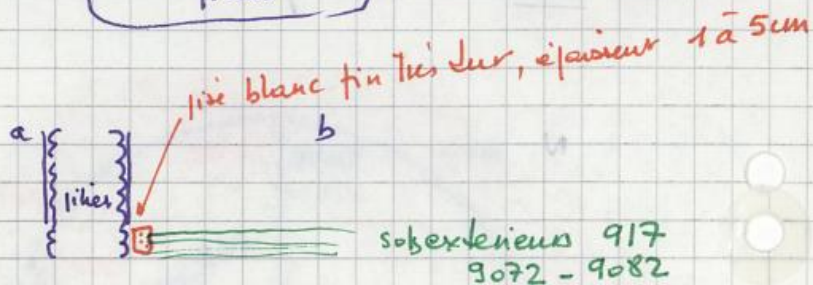 lisé blanc fin très dur, épaisseur 1 à 5cm
a
b
pilier
sols exterieurs 917
9072 - 9082